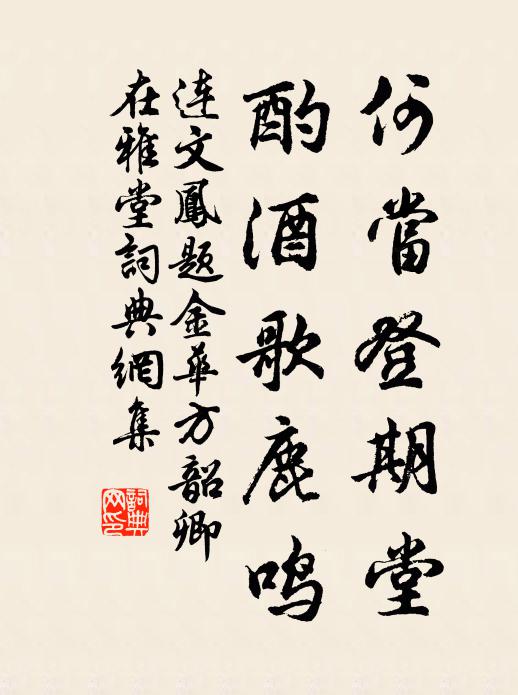 何當登期堂
酌酒歌鹿鳴
连文鳳题金華方韶卿
在雅堂詞典網集
詞典网印